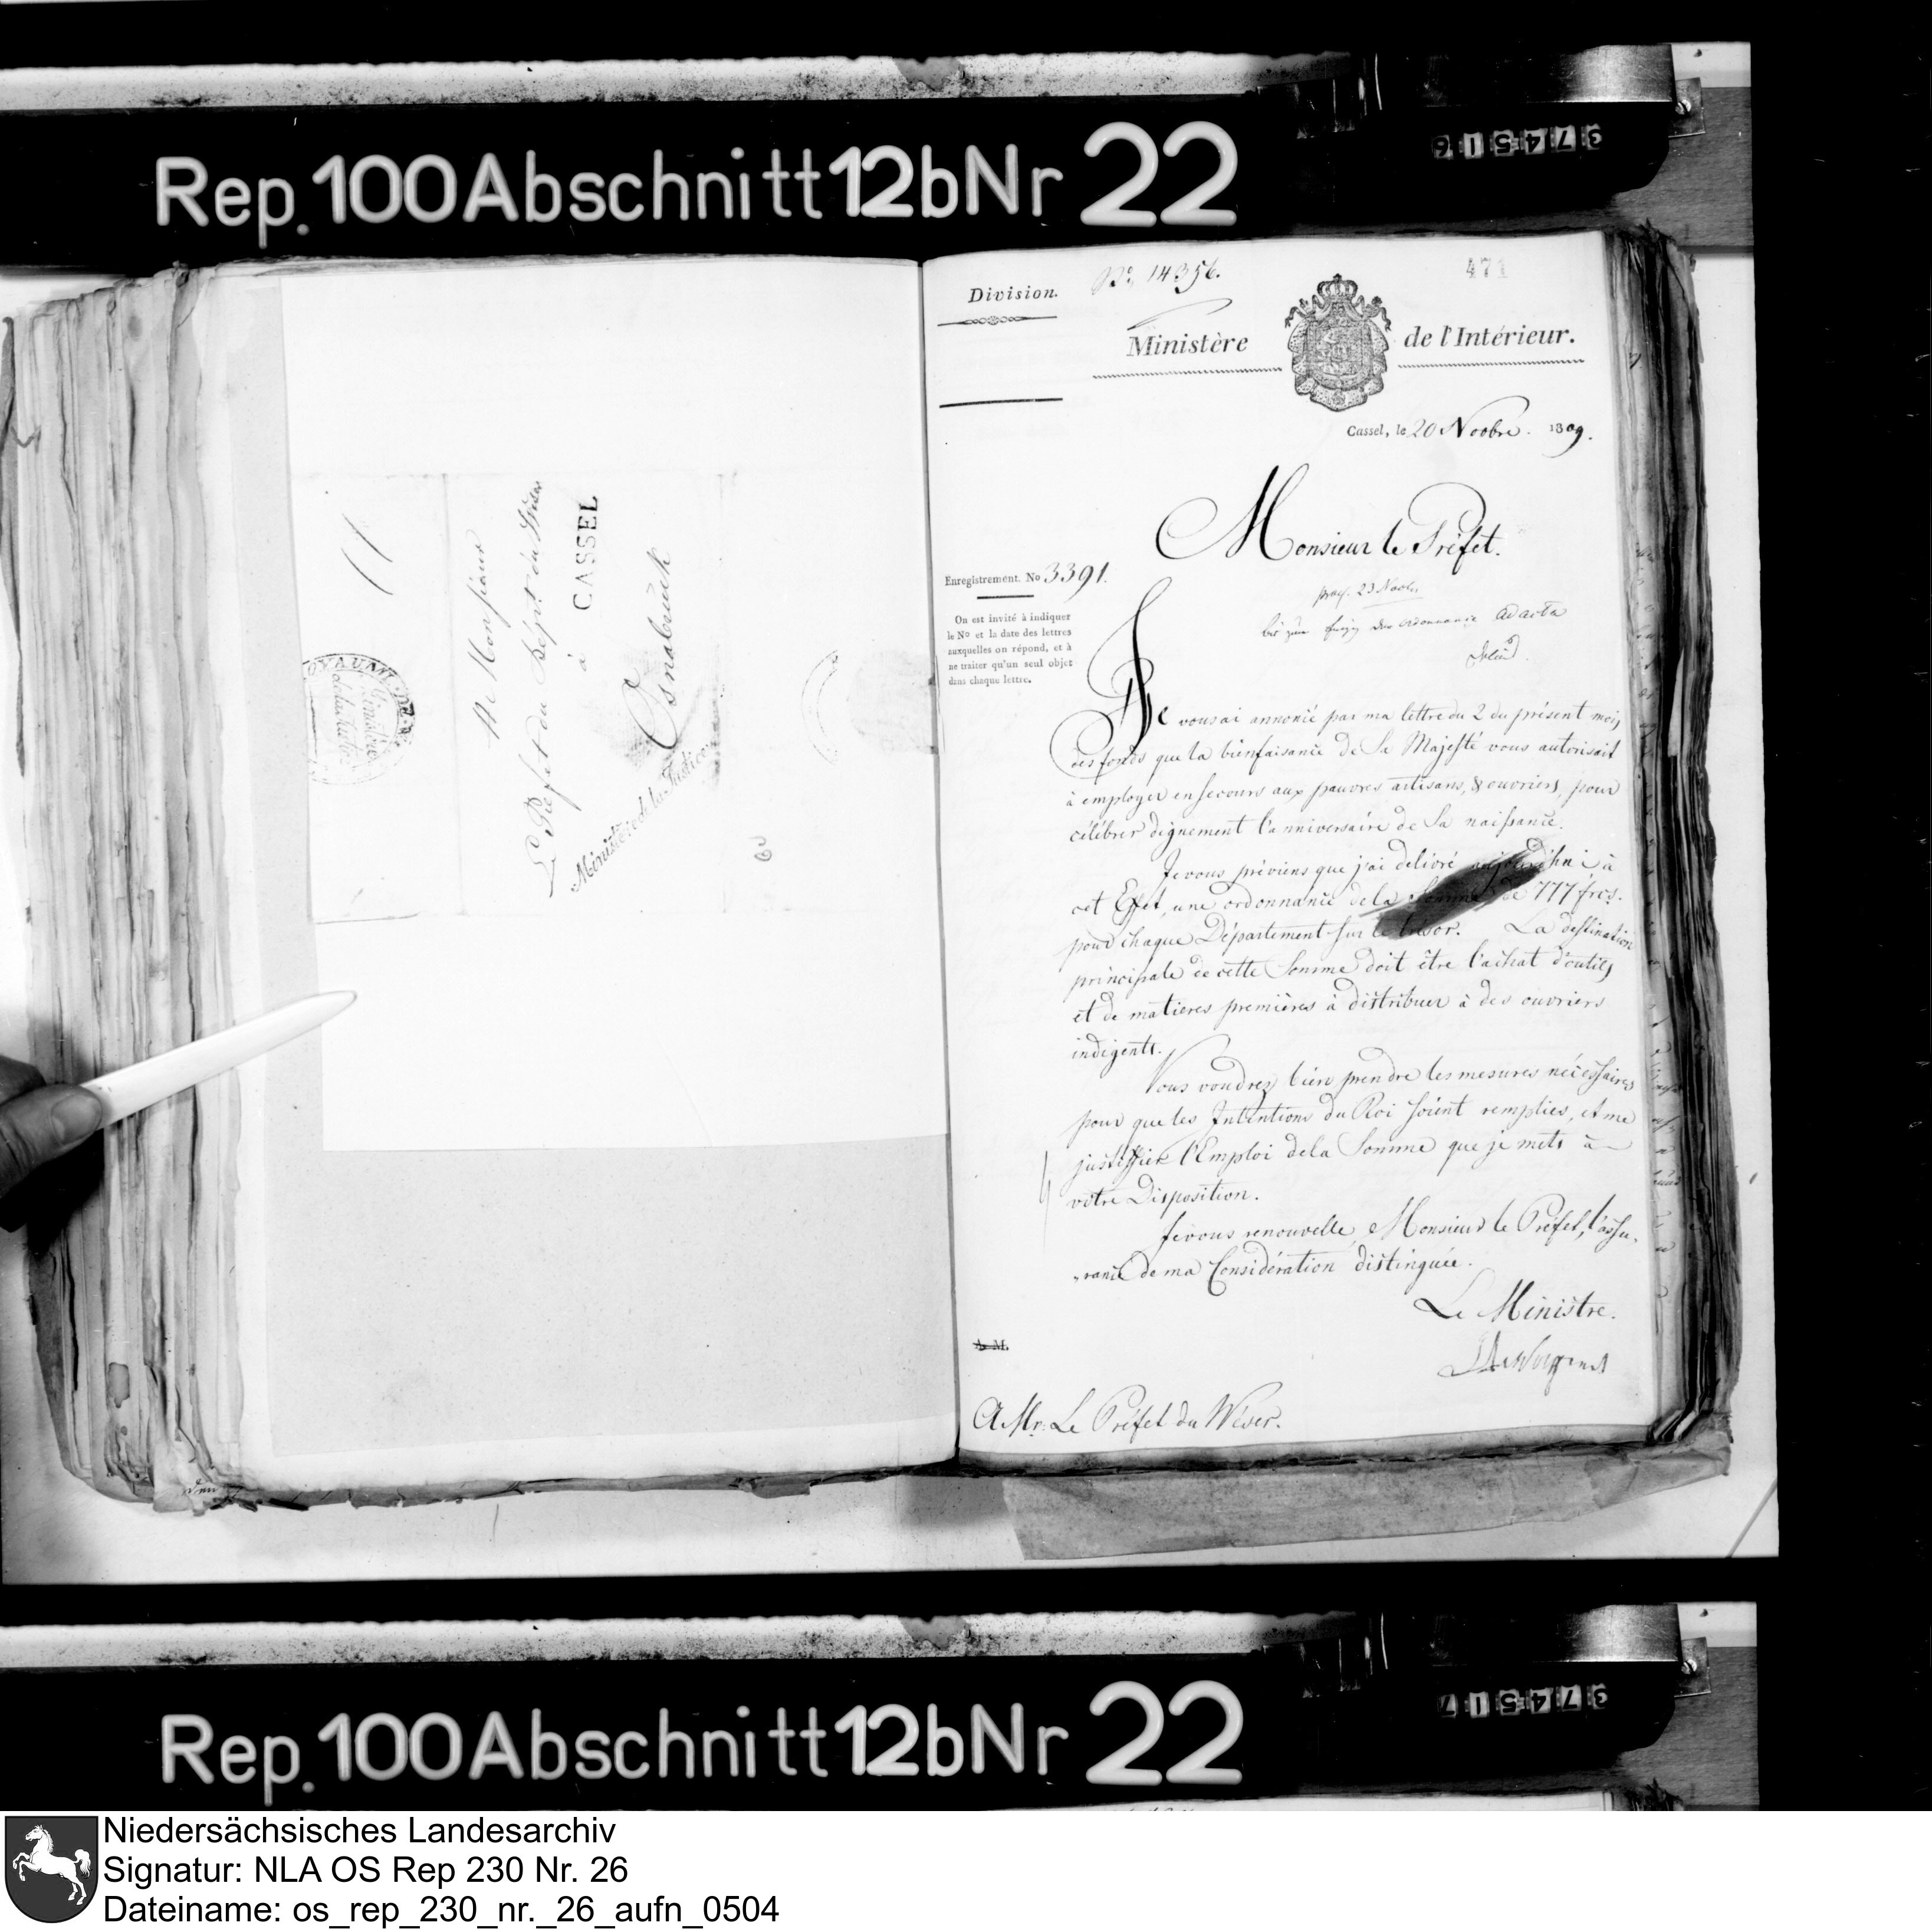 Rep. 100 Abschnitt 12b Nr 22
374516
A Monsieur
Le Préfet du Dépt. du Weser
à
CASSEL
Osnabruck
Ministère de la Justice
Division.
No. 14356.
471
Ministère de l'Intérieur.
Cassel, le 20 Novbre. 1809.
Monsieur le Préfet.
Enregistrement. No 3391.
On est invité à indiquer
le No et la date des lettres
auxquelles on répond, et à
ne traiter qu'un seul objet
dans chaque lettre.
23 Novbr
Ordonnance ad acta
Je vous ai annoncé par ma lettre du 2 du présent mois,
des fonds que la bienfaisance de Sa Majesté vous autorisait
à employer en secours aux pauvres artisans, & ouvriers, pour
célébrer dignement l'anniversaire de Sa naissance.
Je vous préviens que j'ai delivré aujourd'hui à
cet Effet, une ordonnance de la Somme de 777 frcs.
pour chaque Département sur le trésor. La destination
principale de cette Somme doit être l'achat d'outils
et de matieres premières à distribuer à des ouvriers
indigents.
Vous voudrez bien prendre les mesures nécessaires
pour que les Intentions du Roi soient remplies, et me
justifier l'Emploi de la Somme que je mets à
votre Disposition.
Je vous renouvelle, Monsieur le Préfet, l'assu-
rance de ma Considération distinguée.
Le Ministre.
A. M.
A Mr. Le Préfet du Wéser.
Rep. 100 Abschnitt 12b Nr 22
374517
Niedersächsisches Landesarchiv
Signatur: NLA OS Rep 230 Nr. 26
Dateiname: os_rep_230_nr._26_aufn_0504